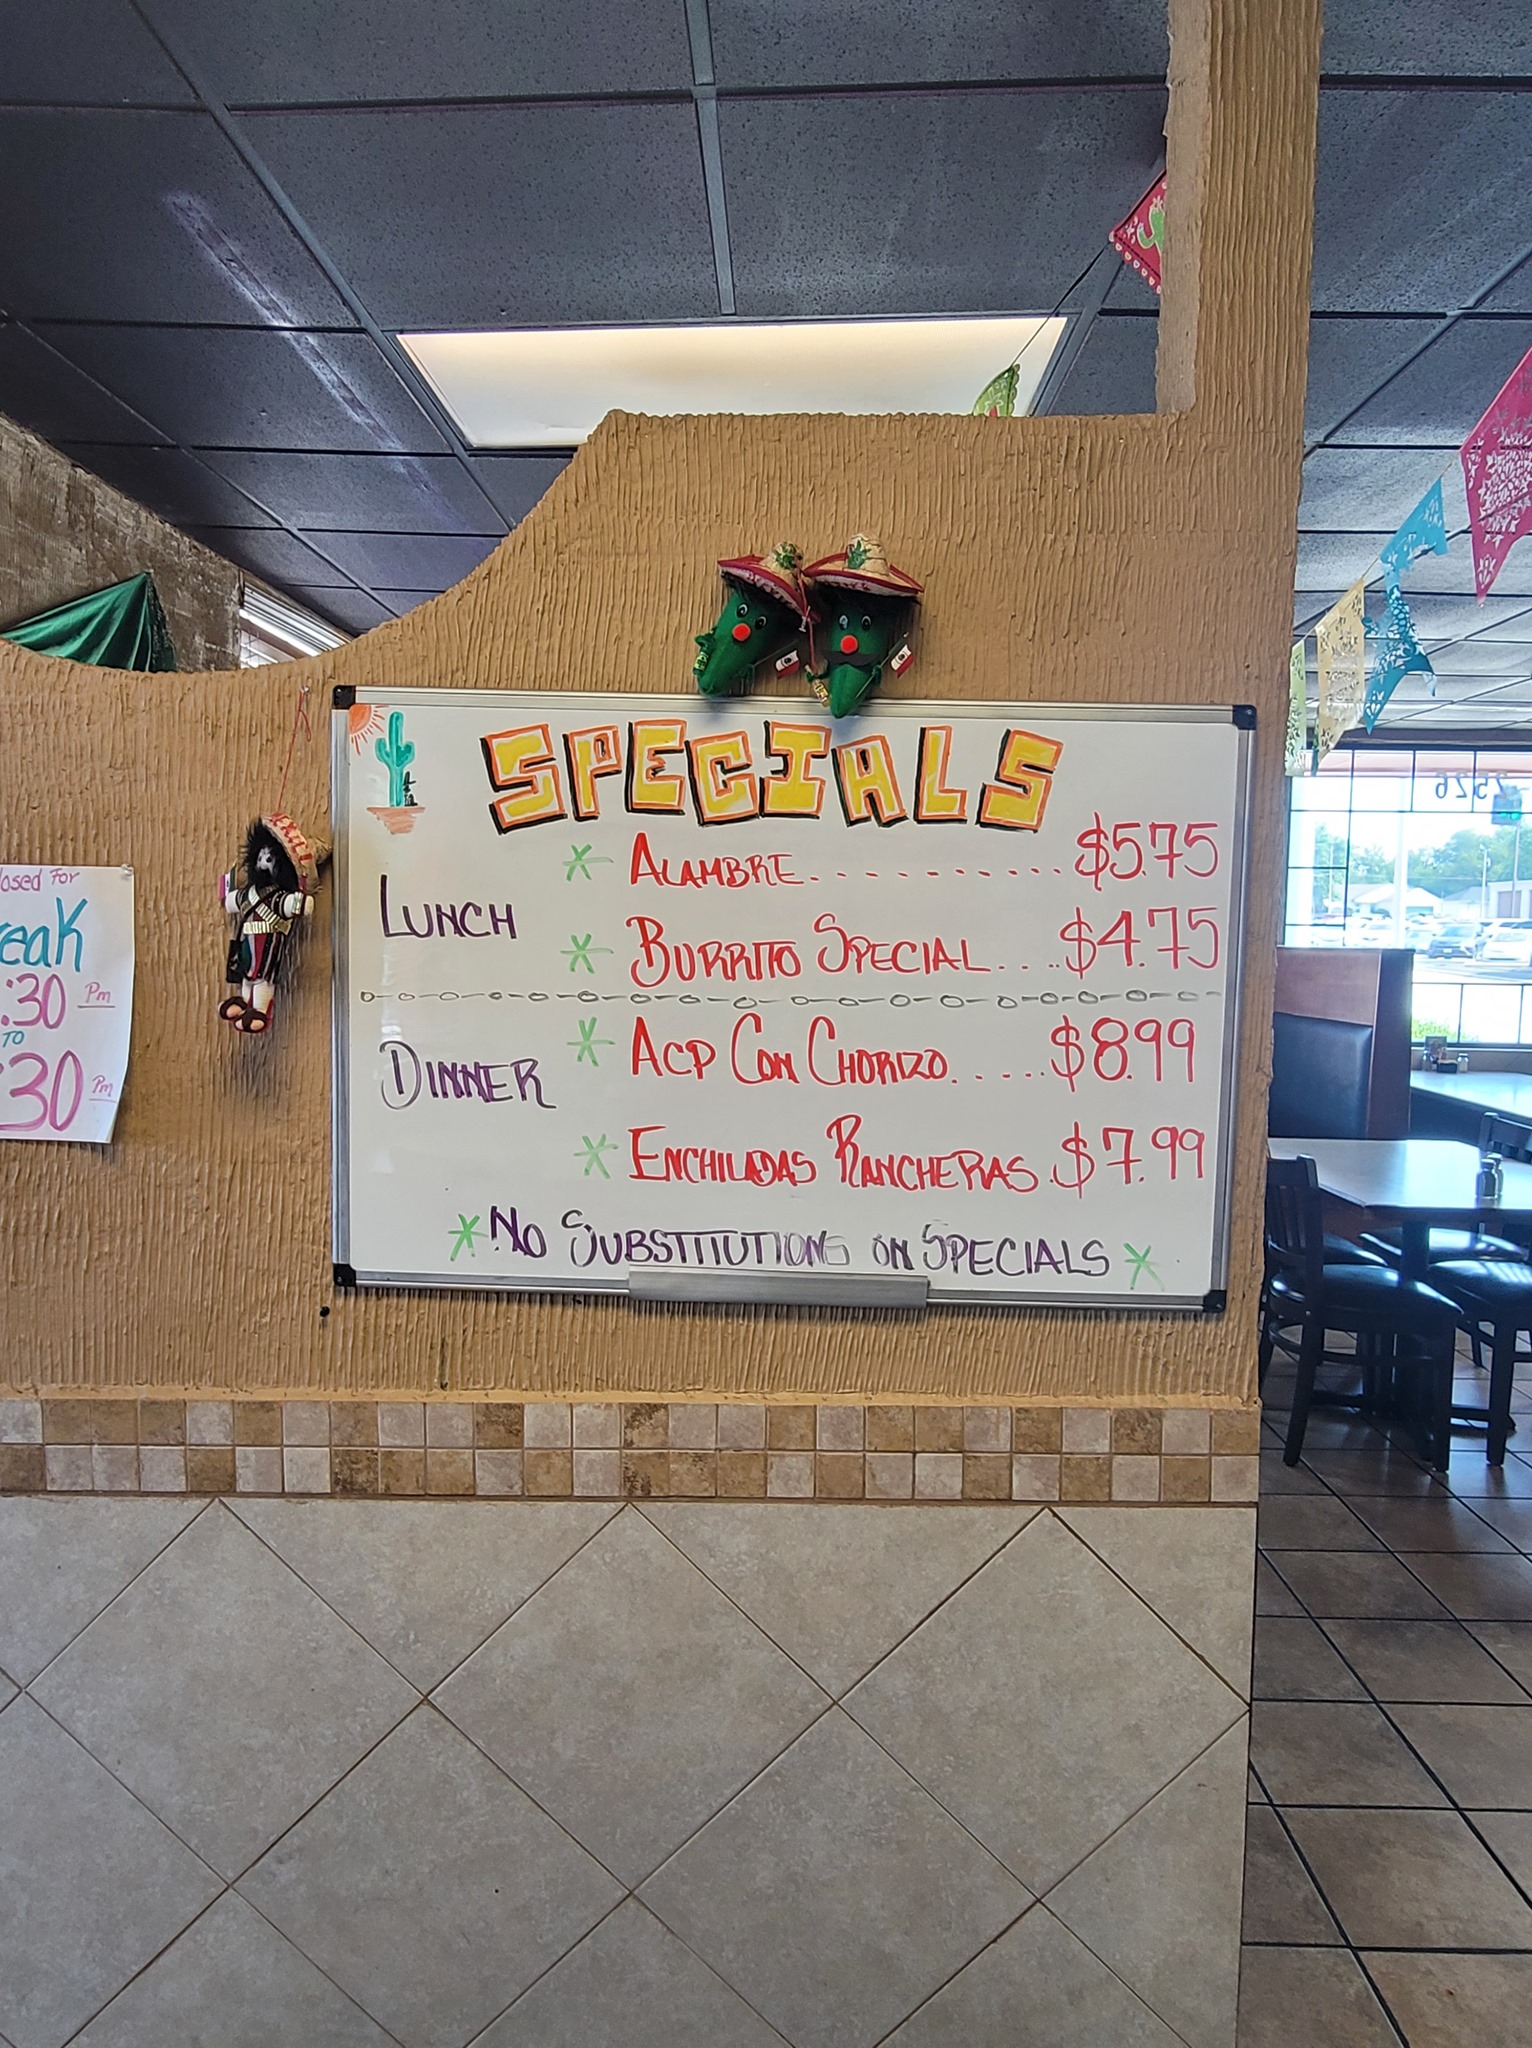 SPECIALS
LUNCH
* ALAMBRE........... $5.75
* BURRITO SPECIAL.... $4.75
DINNER
* ACP CON CHORIZO...... $8.99
* ENCHILADAS RANCHERAS. $7.99
*NO SUBSTITUTIONS ON SPECIALS*
losed For
reak
:30 Pm
TO
:30 Pm
2526